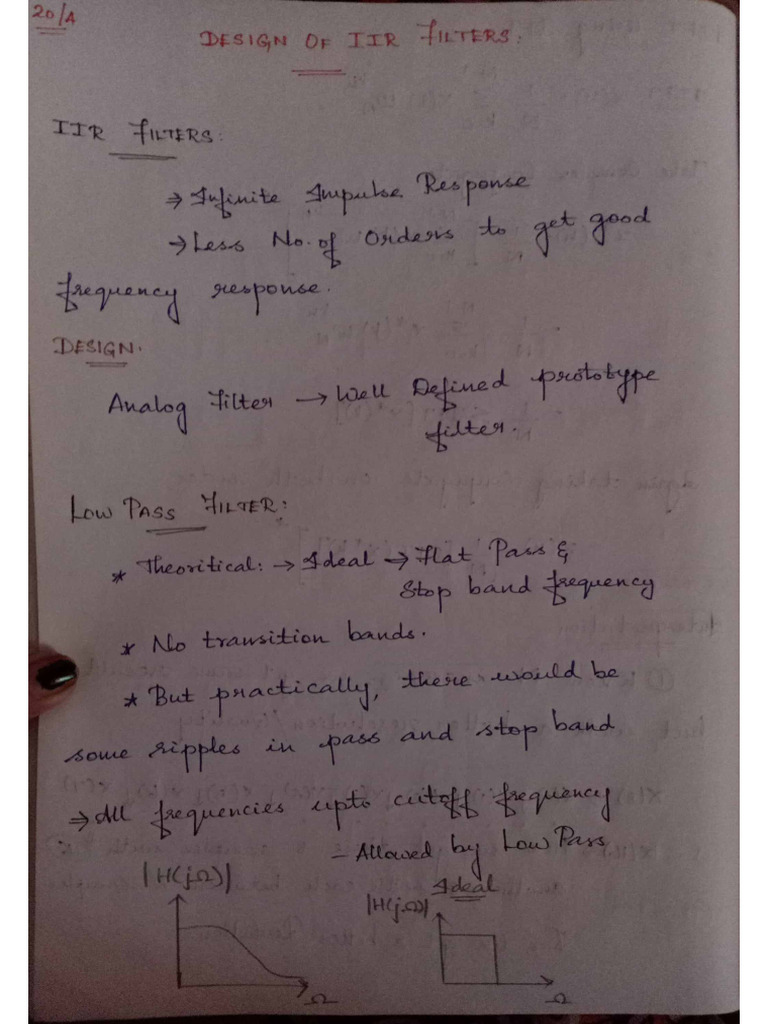 20/4
DESIGN OF IIR FILTERS:
IIR FILTERS:
⇒ Infinite Impulse Response
→ Less No. of Orders to get good
frequency response.
DESIGN.
Analog Filter → Well Defined prototype
filter.
LOW PASS FILTER:
* Theoritical: → Ideal → Flat Pass &
Stop band frequency
* No transition bands.
* But practically, there would be
some ripples in pass and stop band
⇒ All frequencies upto cutoff frequency
- Allowed by Low Pass
|H(jΩ)|
Ω
Ideal
|H(jΩ)|
Ω